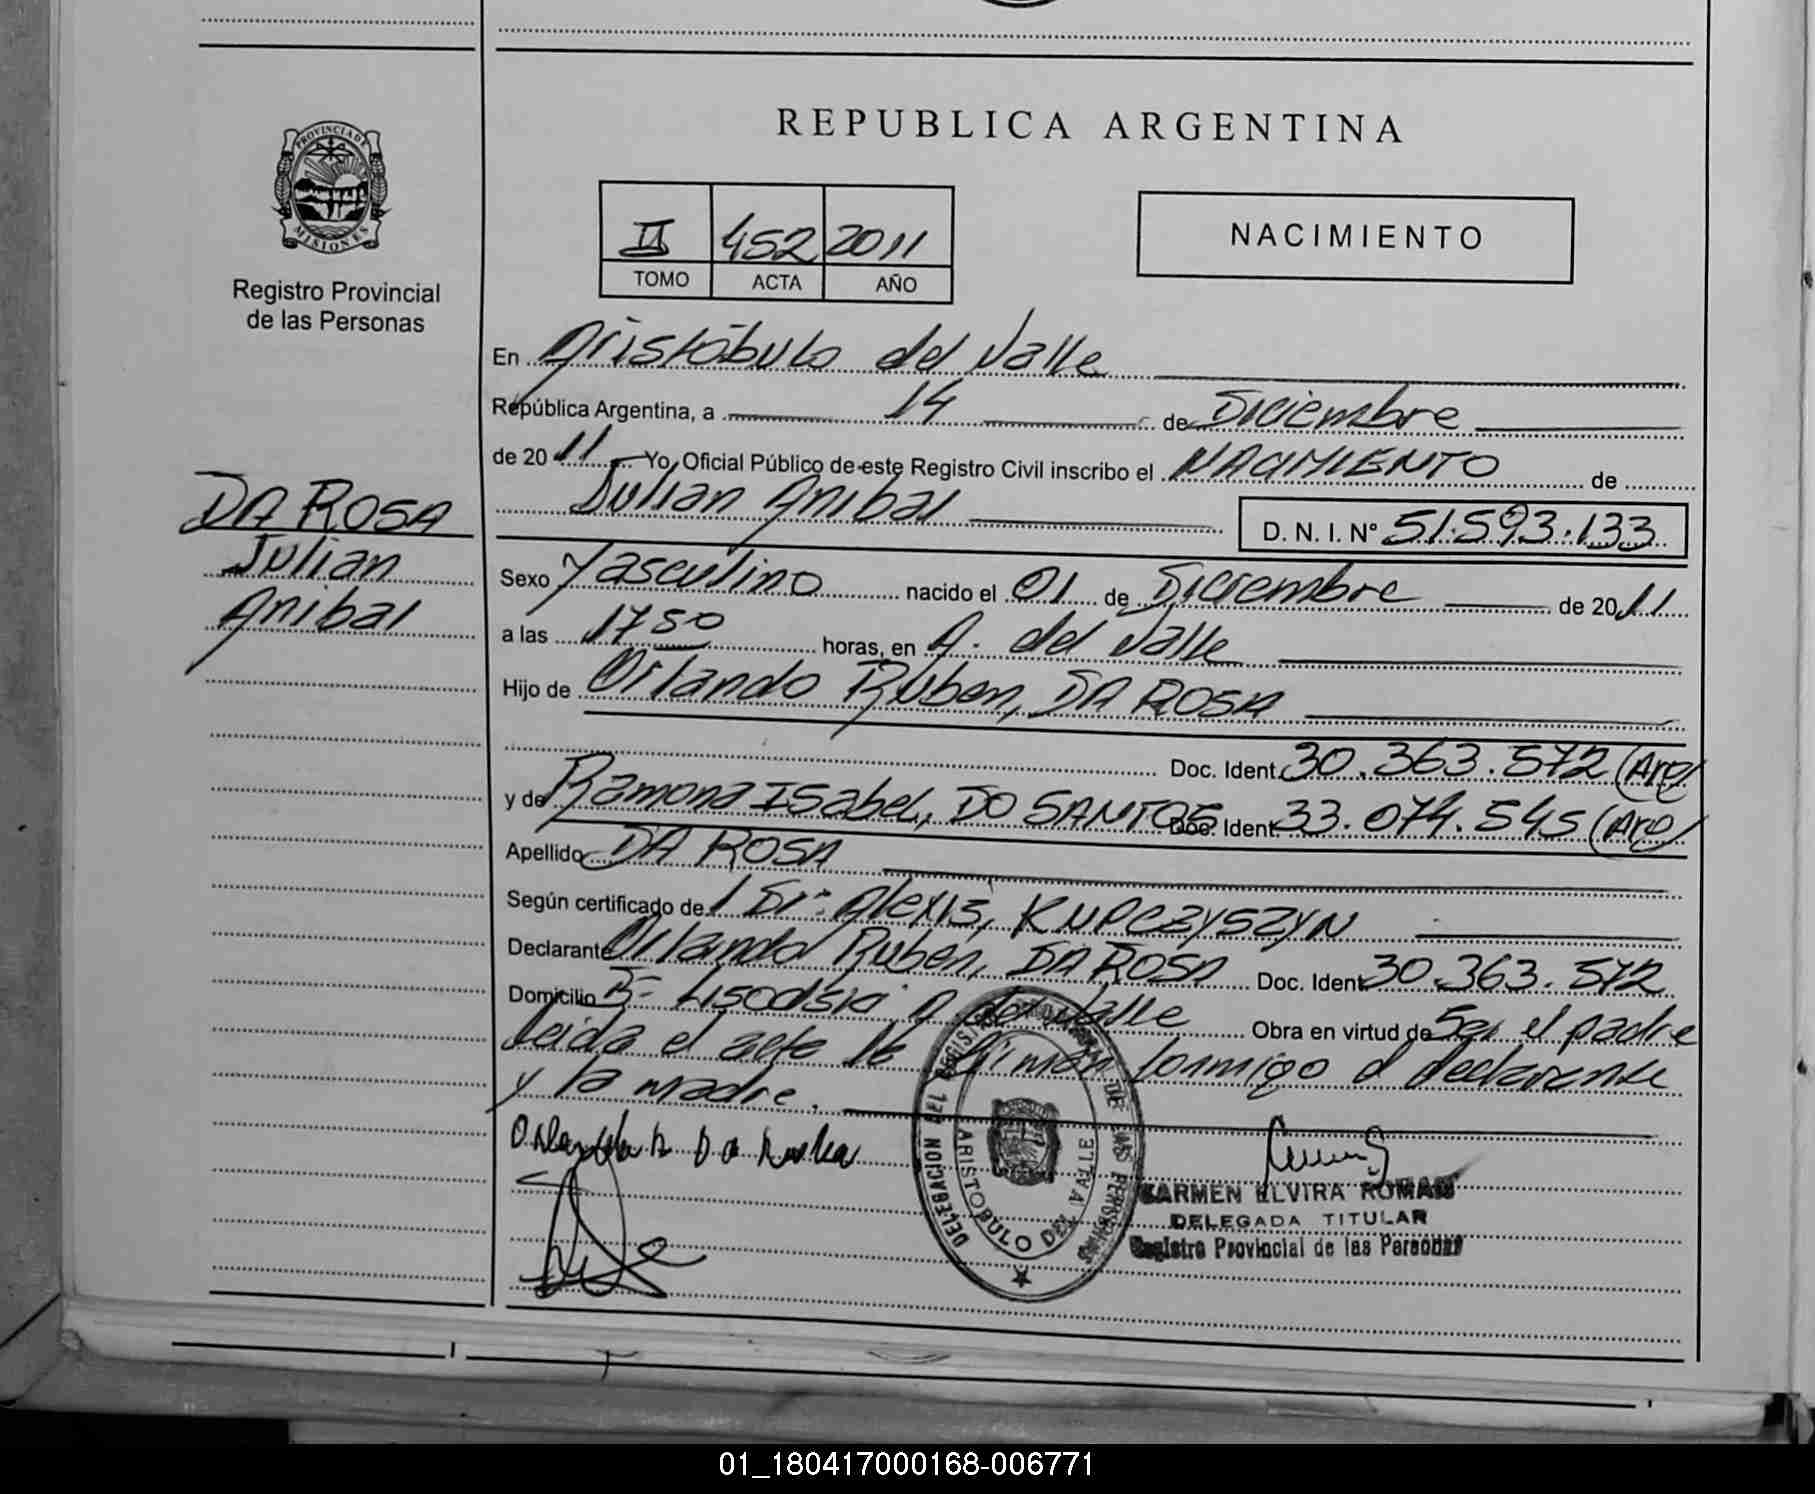 PROVINCIA DE
MISIONES
Registro Provincial
de las Personas
DA ROSA
Julian
Anibal
REPUBLICA ARGENTINA
II 452 2011
TOMO ACTA AÑO
NACIMIENTO
En Aristóbulo del Valle
República Argentina, a 14 de Diciembre
de 2011 Yo, Oficial Público de este Registro Civil inscribo el NACIMIENTO de
Julian Anibal D. N. I. Nº 51.593.133
Sexo Masculino nacido el 01 de Diciembre de 2011
a las 1750 horas, en A. del Valle
Hijo de Orlando Ruben, DA ROSA
Doc. Ident. 30.363.572 (Arg)
y de Ramona Isabel, DO SANTOS Doc. Ident. 33.074.545 (Arg)
Apellido DA ROSA
Según certificado del Dr: Alexis, KUPCZYSZYN
Declarante Orlando Ruben, DA ROSA Doc. Ident. 30.363.572
Domicilio A. del Valle Obra en virtud de Ser el padre
Leida el acta la firman conmigo el declarante
y la madre.
DELEGACION REGISTRO PROVINCIAL DE LAS PERSONAS
ARISTOBULO DEL VALLE
CARMEN ELVIRA ROMAN
DELEGADA TITULAR
Registro Provincial de las Personas
01_180417000168-006771